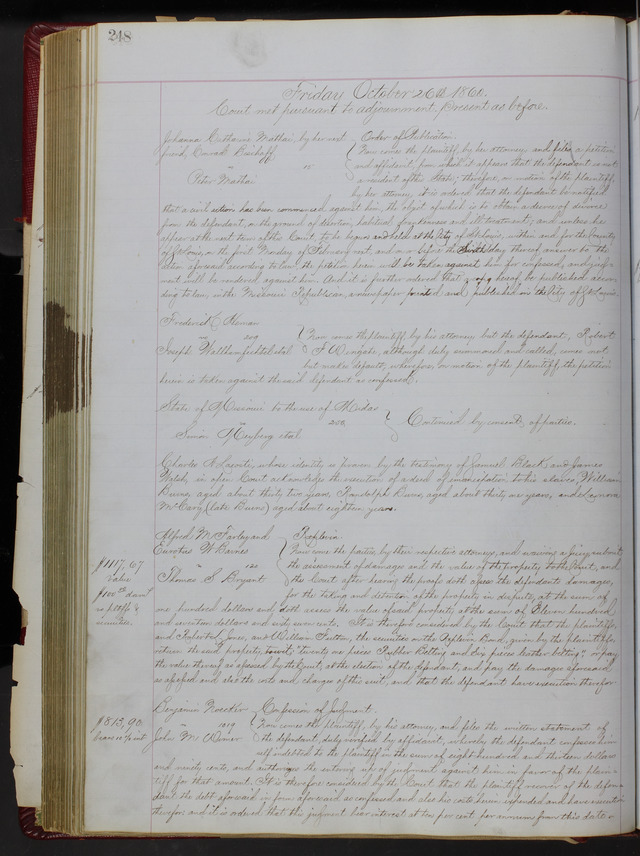 248
Friday October 26th 1860.
Court met pursuant to adjournment, Present as before.
Johanna Catharine Mathai, by her next Order of Publication.
friend, Conrad Bischoff Now come the plaintiff, by her attorney and files a petition
vs and affidavit, from which it appears that the defendant is not
Peter Mathai a resident of this State; therefore, on motion of the plaintiff
by her attorney, it is ordered that the defendant be notified
that a civil action has been commenced against him, the object of which is to obtain a decree of divorce
from the defendant, on the ground of desertion, habitual drunkenness and ill treatment; and unless he
appear at the next term of this Court, to be begun and held at the City of St Louis, within and for the County
of St Louis, on the first Monday of February next, and on or before the sixth day thereof, answer to the
action aforesaid according to law, the petition herein will be taken against him for confessed, and judg-
ment will be rendered against him. And it is further ordered that a copy hereof be published accor-
ding to law, in the Missouri Republican, a newspaper printed and published in the City of St Louis.
Frederick Heman
209 Now comes the plaintiff, by his attorney, but the defendant, Robert
Joseph Walthamfecht et al although duly summoned and called, comes not
but makes default; wherefore, on motion of the plaintiff, the petition
herein is taken against the said defendant as confessed.
State of Missouri to the use of Midas
200 Continued by consent of parties.
Simon Heyberg et al
Charles A Lacoste, whose identity is proven by the testimony of Samuel Black, and James
Welsh, in open Court acknowledges the execution of a deed of emancipation to his slaves, William
Burns, aged about thirty two years, Randolph Burns, aged about thirty one years, and
McCary (late Burns) aged about eighteen years.
Alfred McFarley and Replevin.
W Barnes Now come the parties by their respective attorneys, and waiving a jury submit
121 the assessment of damages and the value of the property to the Court, and
Thomas S Bryant the Court after hearing the proofs doth assess the defendants damages,
for the taking and detention of the property in dispute, at the sum of
one hundred dollars and doth assess the value of said property at the sum of Eleven hundred
and seventeen dollars and sixty seven cents. It is therefore considered by the Court that the plaintiffs,
and Jones, and William Sutton, the securities in the Replevin Bond, given by the plaintiffs
return the said property, to wit; "twenty one pieces Rubber Belting and six pieces leather belting"; or pay
the value thereof as assessed by the Court, at the election of the defendant, and pay the damages aforesaid
as assessed and also the costs and charges of this suit, and that the defendant have execution therefor.
$1117.67
value
$100.00 dam
vs pltffs &
securities.
Benjamin Confession of Judgment.
1219 Now comes the plaintiff, by his attorney, and files the written statement of
John M the defendant, duly verified by affidavit, whereby the defendant confesses him-
self indebted to the plaintiff in the sum of eight hundred and thirteen dollars
and ninety cents, and authorizes the entering up of judgment against him in favor of the plain-
tiff for that amount. It is therefore considered by the Court that the plaintiff recover of the defen-
dant the debt aforesaid in form aforesaid as confessed and also his costs herein expended and have execution
therefor; and it is ordered that this judgment bear interest at ten per cent per annum from this date.
$813.90